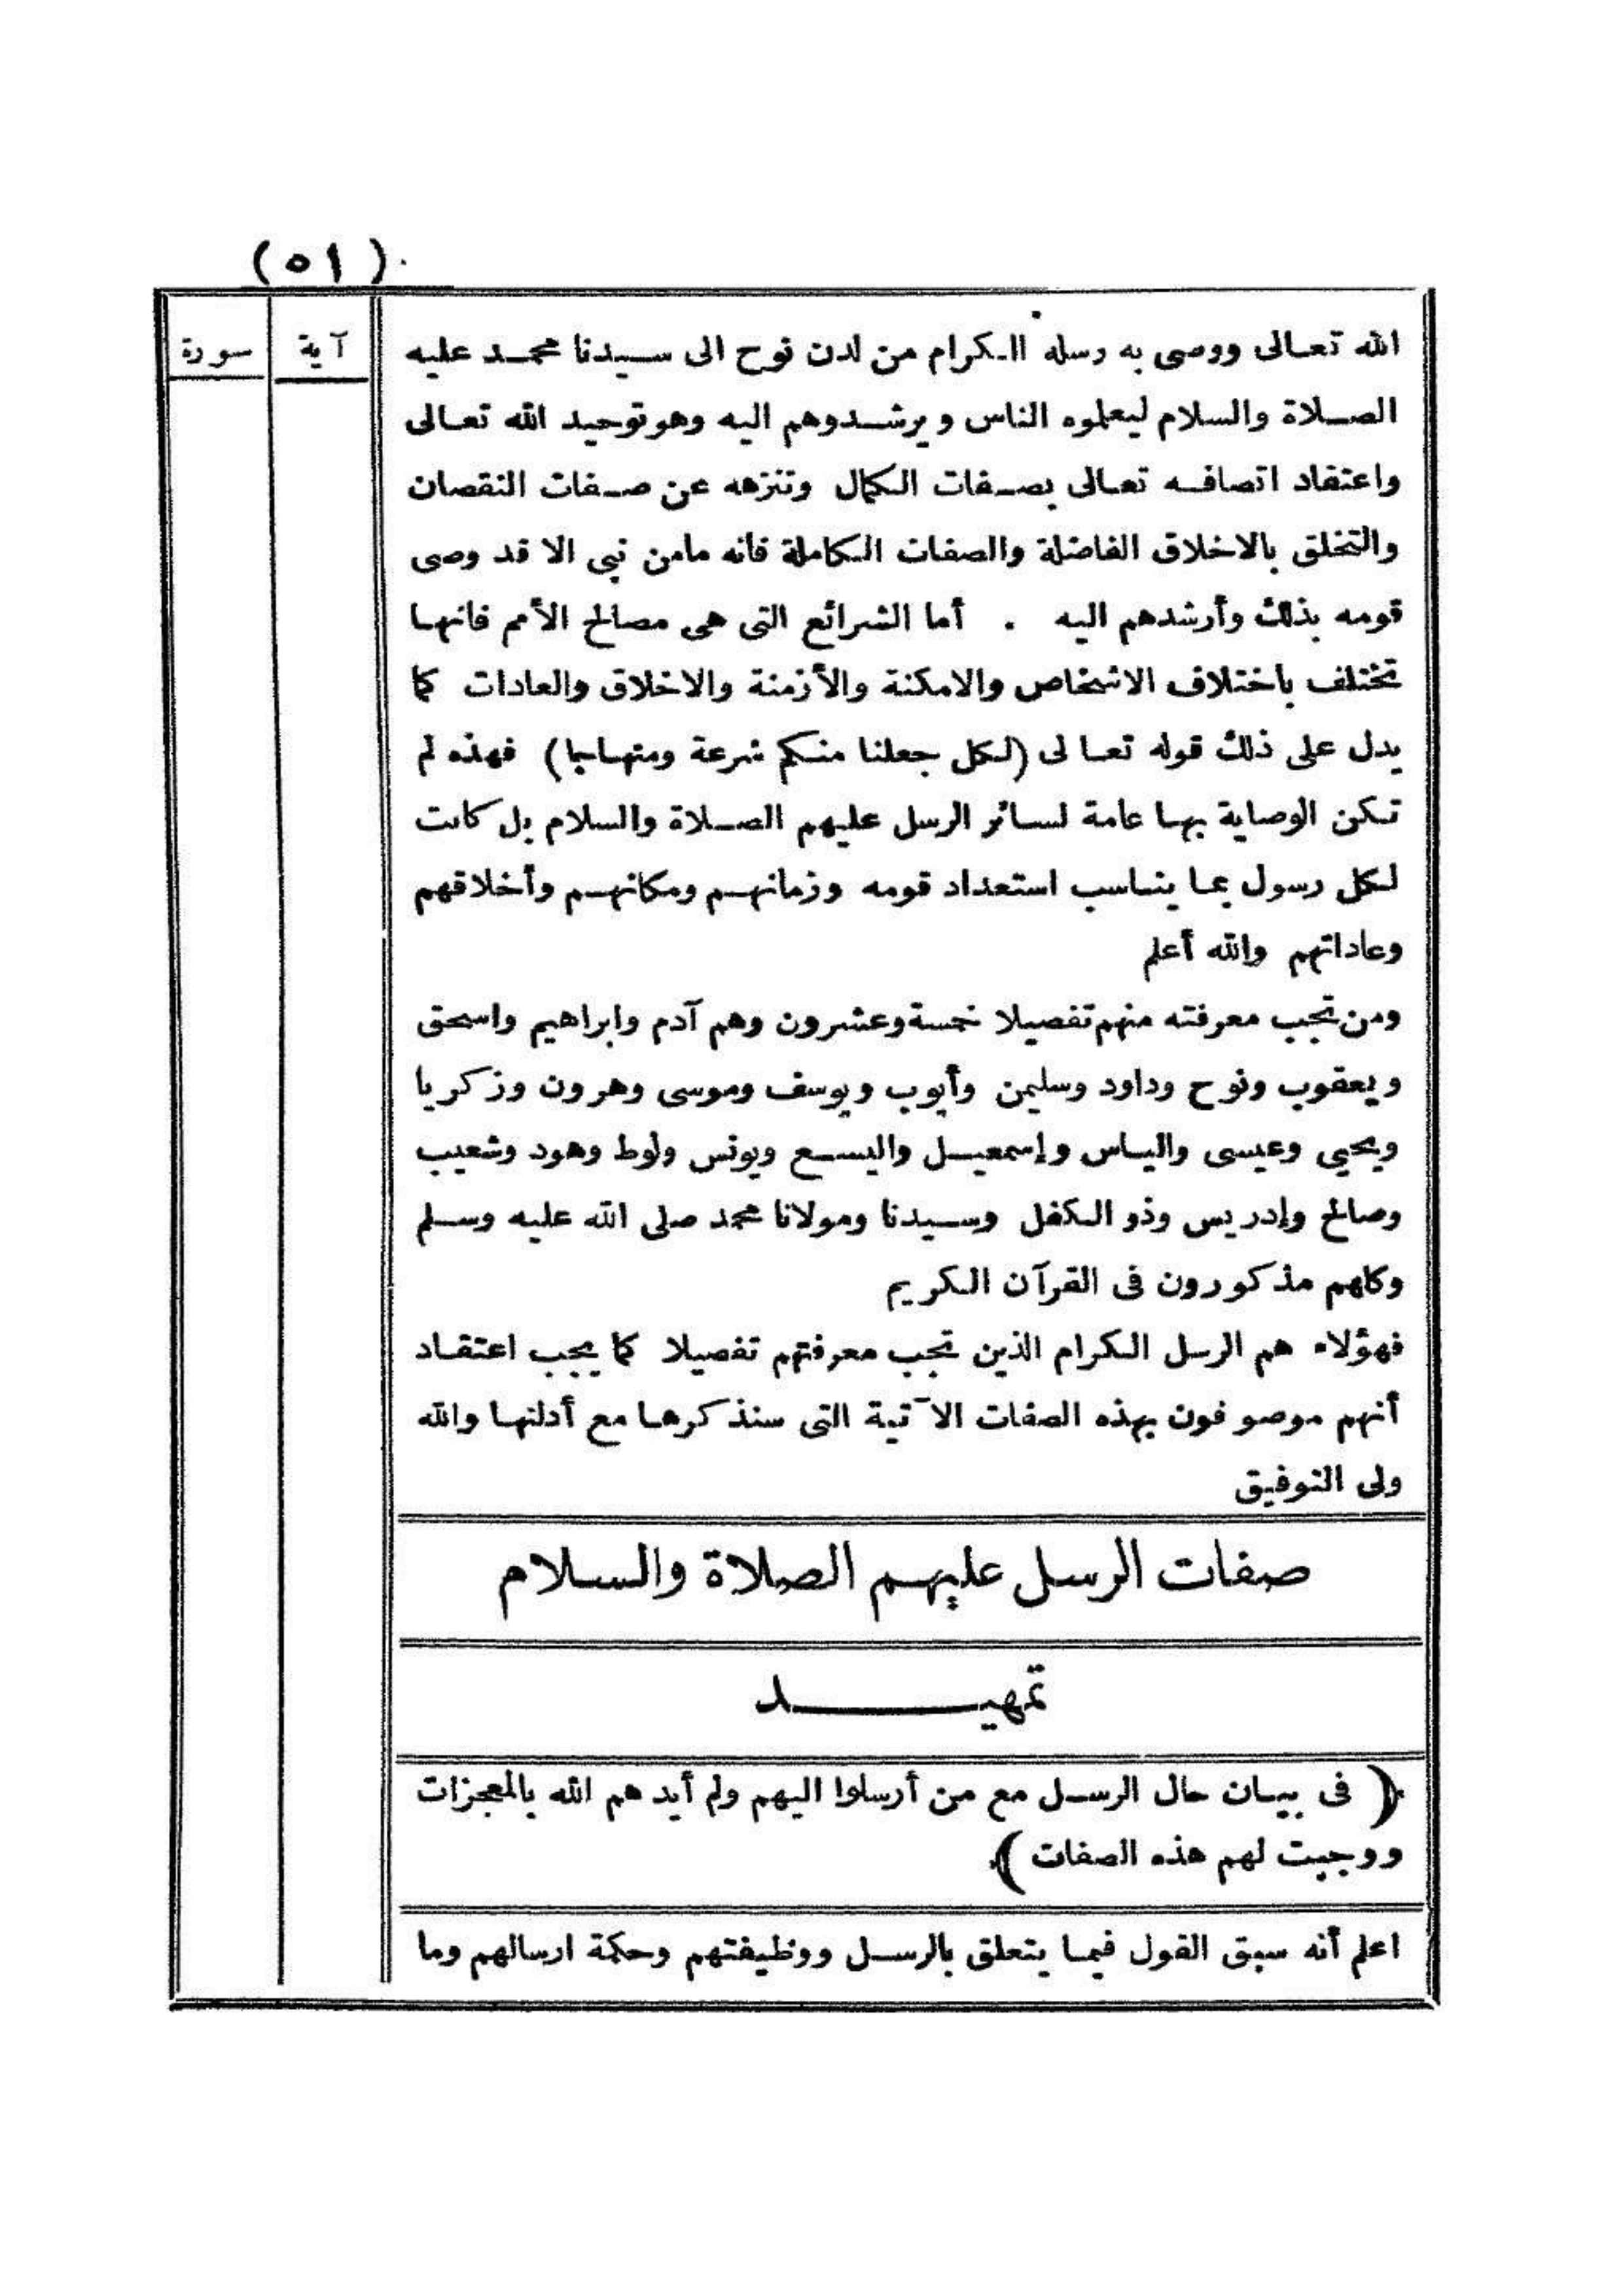 (٥١)
آية
سورة
الله تعالى ووصى به رسله الكرام من لدن نوح الى سيدنا محمد عليه
الصلاة والسلام ليعلموه الناس ويرشدوهم اليه وهو توحيد الله تعالى
واعتقاد اتصافه تعالى بصفات الكمال وتنزهه عن صفات النقصان
والتخلق بالاخلاق الفاضلة والصفات الكاملة فانه مامن نبى الا قد وصى
قومه بذلك وأرشدهم اليه . أما الشرائع التى هى مصالح الأمم فانها
تختلف باختلاف الاشخاص والامكنة والأزمنة والاخلاق والعادات كما
يدل على ذلك قوله تعالى (لكل جعلنا منكم شرعة ومنهاجا) فهذه لم
تكن الوصاية بها عامة لسائر الرسل عليهم الصلاة والسلام بل كانت
لكل رسول بما يناسب استعداد قومه وزمانهم ومكانهم وأخلاقهم
وعاداتهم والله أعلم
ومن تجب معرفته منهم تفصيلا خمسة وعشرون وهم آدم وابراهيم واسحق
ويعقوب ونوح وداود وسليمن وأيوب ويوسف وموسى وهرون وزكريا
ويحيى وعيسى والياس وإسمعيل واليسع ويونس ولوط وهود وشعيب
وصالح وإدريس وذو الكفل وسيدنا ومولانا محمد صلى الله عليه وسلم
وكلهم مذكورون فى القرآن الكريم
فهؤلاء هم الرسل الكرام الذين تجب معرفتهم تفصيلا كما يجب اعتقاد
أنهم موصوفون بهذه الصفات الآتية التى سنذكرها مع أدلتها والله
ولى التوفيق
صفات الرسل عليهم الصلاة والسلام
تمهيد
﴿ فى بيان حال الرسل مع من أرسلوا اليهم ولم أيدهم الله بالمعجزات
ووجبت لهم هذه الصفات ﴾
اعلم أنه سبق القول فيما يتعلق بالرسل ووظيفتهم وحكمة ارسالهم وما